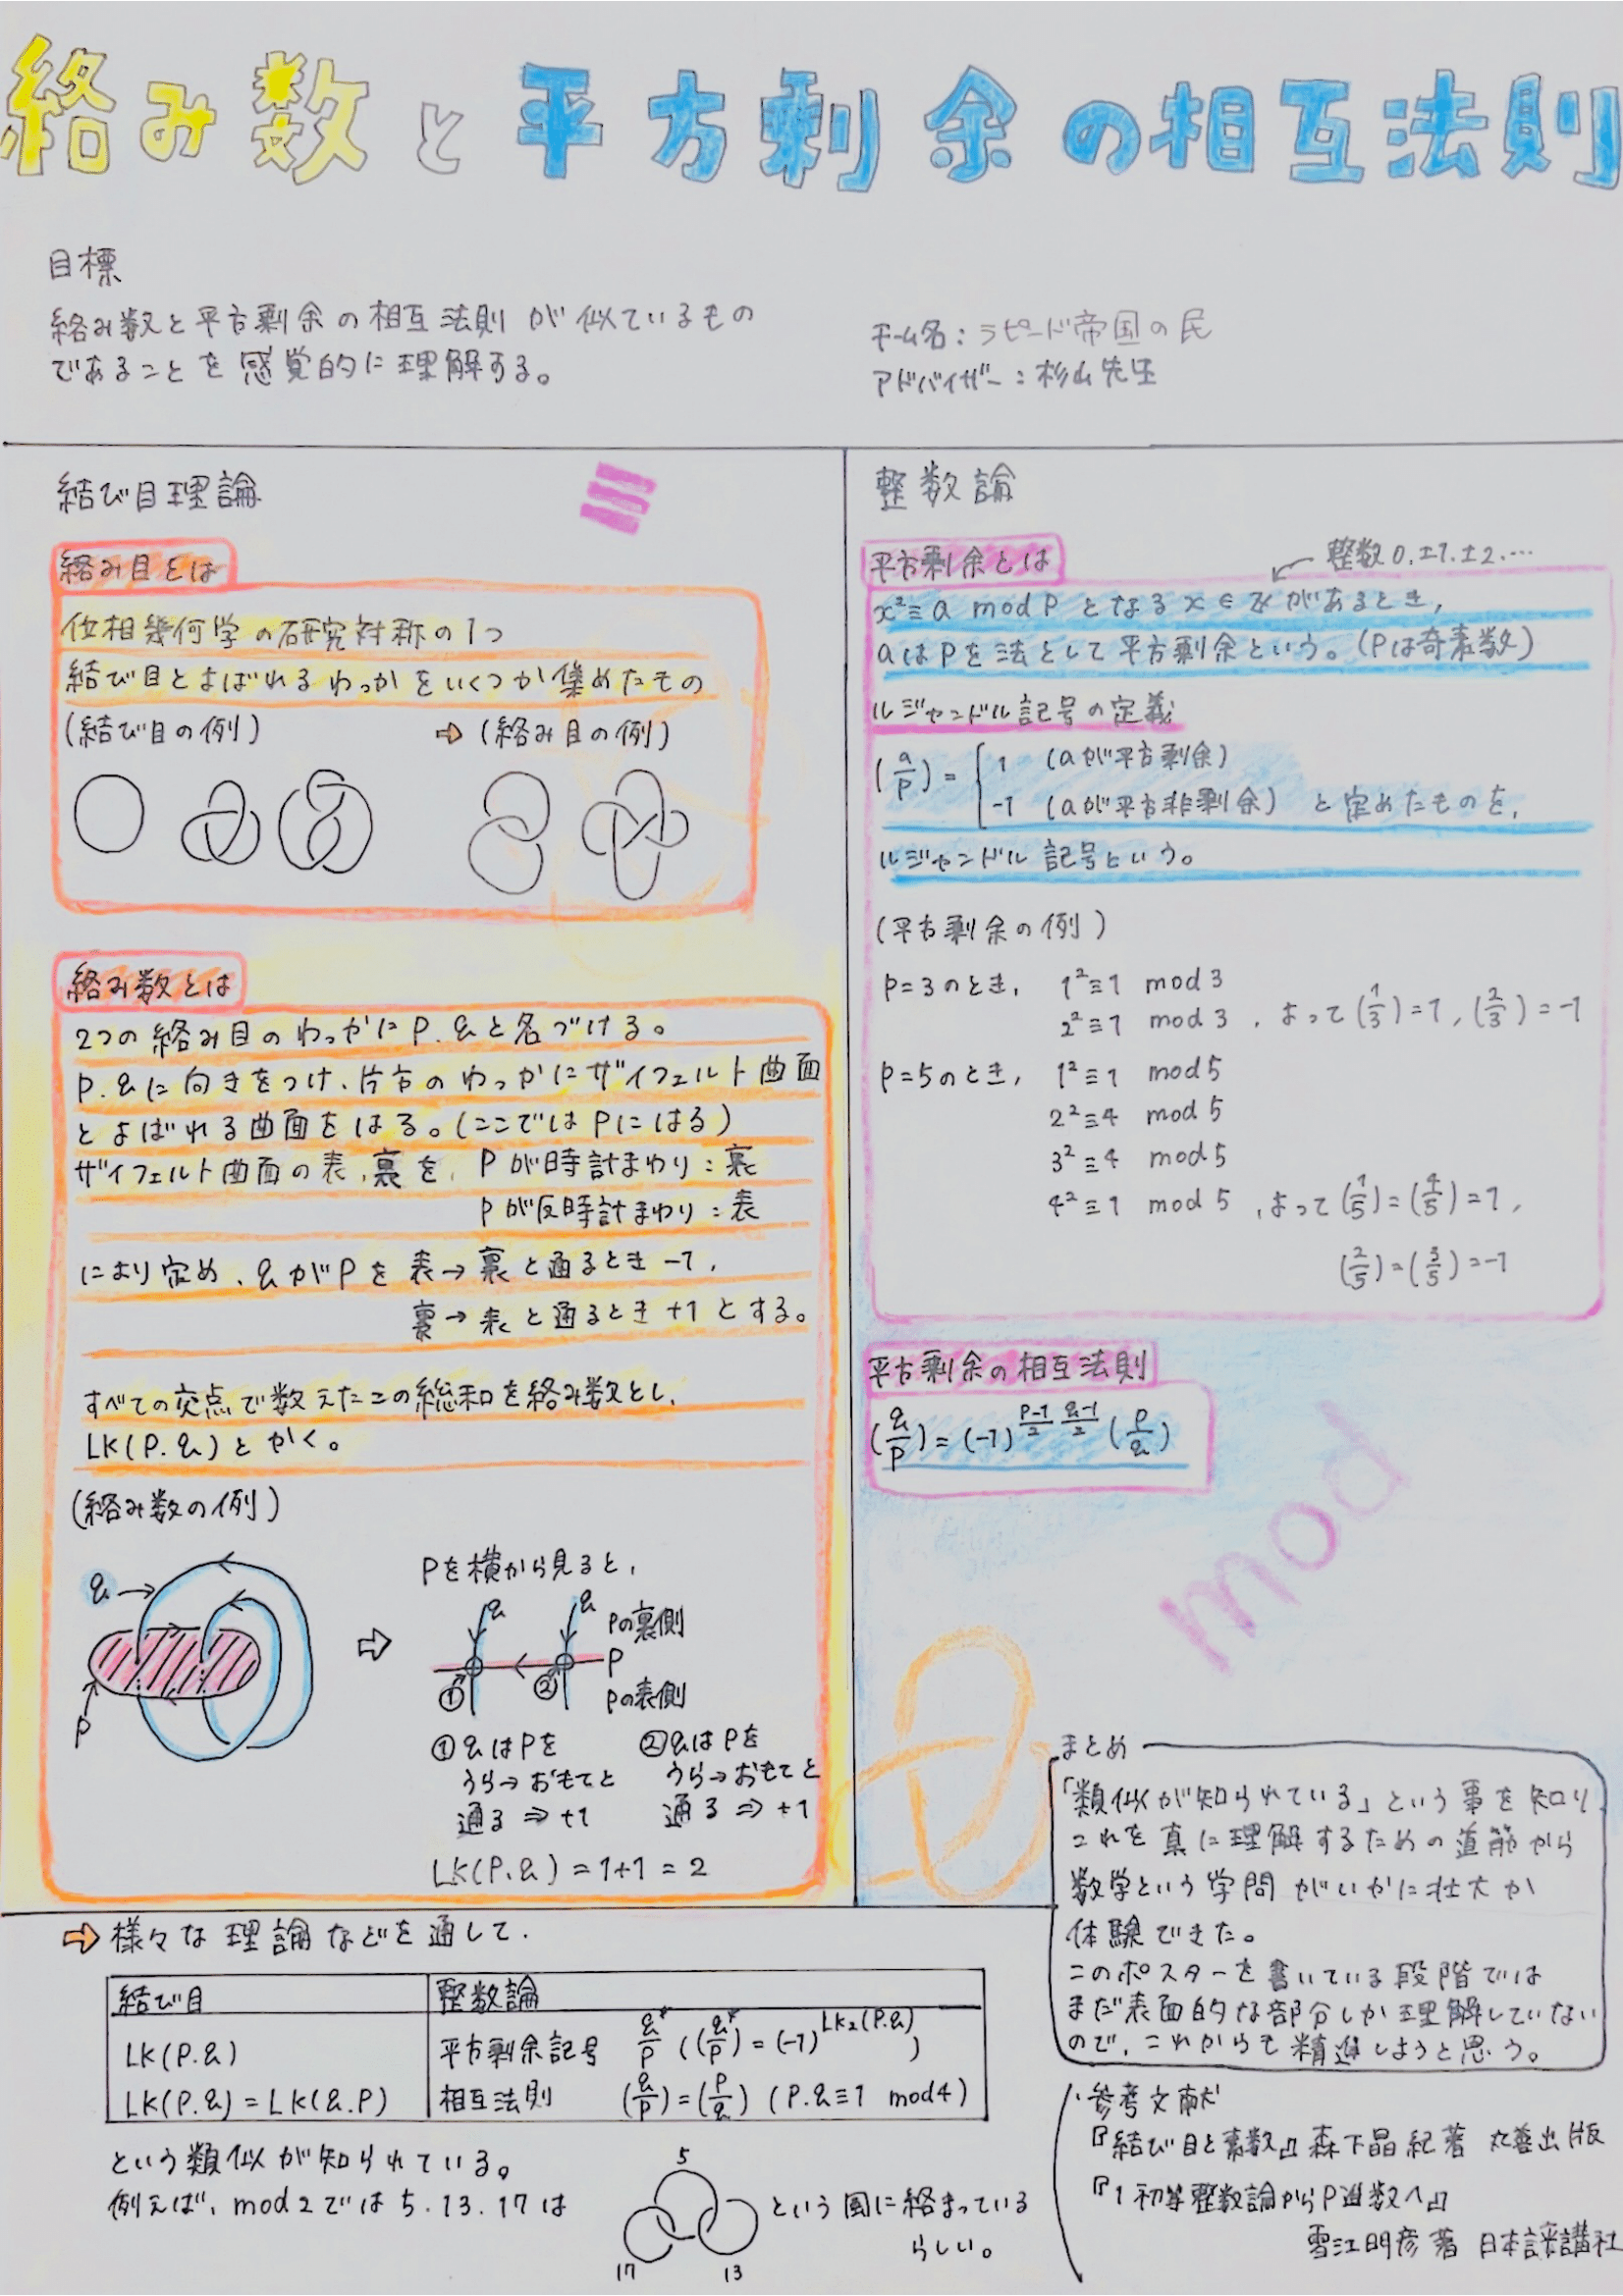 絡み数と平方剰余の相互法則
目標
絡み数と平方剰余の相互法則が似ているもの
であることを感覚的に理解する。
チーム名：ラピード帝国の民
アドバイザー：杉山先生
結び目理論
絡み目とは
位相幾何学の研究対称の1つ
結び目とよばれるわっかをいくつか集めたもの
(結び目の例) ⇨ (絡み目の例)
絡み数とは
2つの絡み目のわっかにP.qと名づける。
P.qに向きをつけ、片方のわっかにザイフェルト曲面
とよばれる曲面をはる。(ここではPにはる)
ザイフェルト曲面の表,裏を, Pが時計まわり：裏
Pが反時計まわり：表
により定め、qがPを表→裏と通るとき-1,
裏→表と通るとき+1とする。
すべての交点で数えたこの総和を絡み数とし、
LK(P.q)とかく。
(絡み数の例)
q
P
⇨
Pを横から見ると,
q q
Pの裏側
P
Pの表側
① ②
①qはPを
うら→おもてと
通る⇒+1
②qはPを
うら→おもてと
通る⇒+1
LK(P.q)=1+1=2
整数論
整数0.±1.±2.…
平方剰余とは
x²≡a mod P となるx∈ℤがあるとき,
aはPを法として平方剰余という。(Pは奇素数)
ルジャンドル記号の定義
(a/P)={ 1 (aが平方剰余)
-1 (aが平方非剰余) と定めたものを,
ルジャンドル記号という。
(平方剰余の例)
P=3のとき, 1²≡1 mod 3
2²≡1 mod 3 ,よって(1/3)=1,(2/3)=-1
P=5のとき, 1²≡1 mod 5
2²≡4 mod 5
3²≡4 mod 5
4²≡1 mod 5 ,よって(1/5)=(4/5)=1,
(2/5)=(3/5)=-1
平方剰余の相互法則
(q/P)=(-1)^{P-1/2 q-1/2}(P/q)
mod
まとめ
「類似が知られている」という事を知り
これを真に理解するための道筋から
数学という学問がいかに壮大か
体験できた。
このポスターを書いている段階では
まだ表面的な部分しか理解していない
ので、これからも精進しようと思う。
⇨様々な理論などを通して.
結び目 整数論
LK(P.q) 平方剰余記号 q*/P ((q*/P)=(-1)^{LK₂(P.q)})
LK(P.q)=LK(q.P) 相互法則 (q/P)=(P/q) (P.q≡1 mod4)
という類似が知られている。
例えば、mod2では5.13.17は
5
17
13
という風に絡まっている
らしい。
参考文献
『結び目と素数』森下昌紀著 丸善出版
『1初等整数論からP進数へ』
雪江明彦著 日本評論社